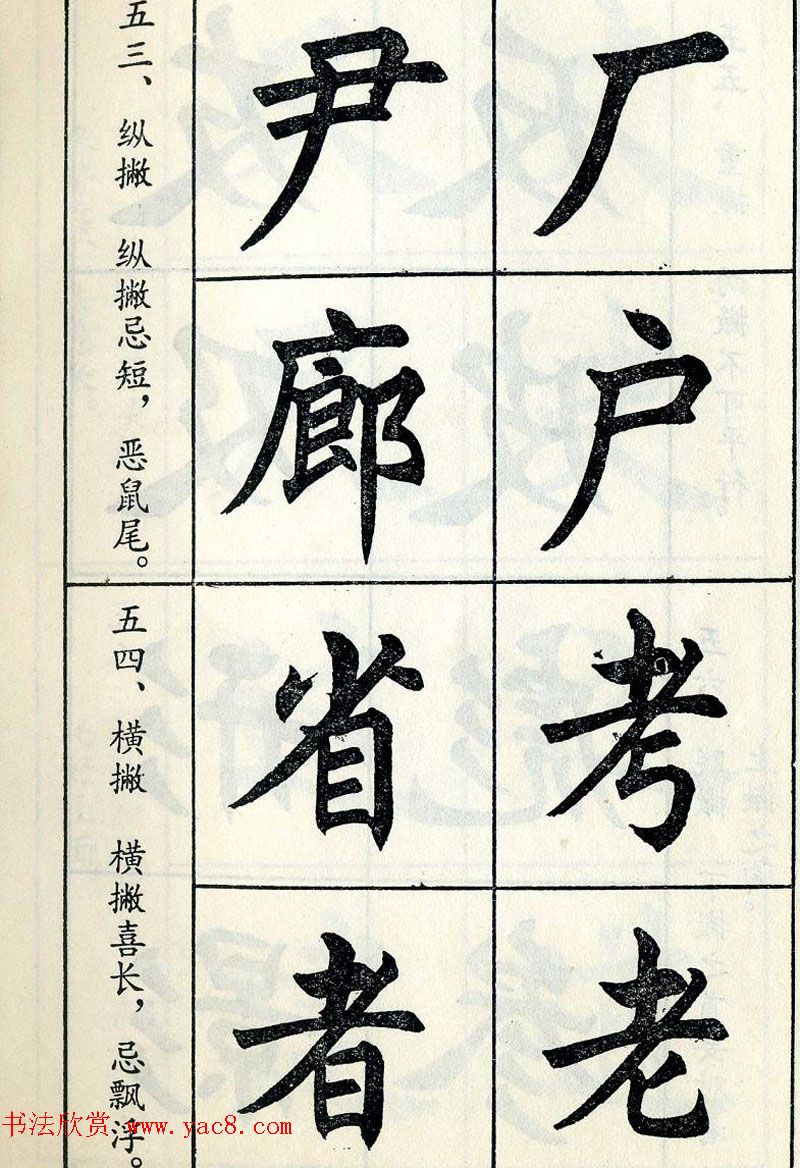 五三、纵撇 纵撇忌短，恶鼠尾。
厂
户
尹
廊
五四、横撇 横撇喜长，忌飘浮。
考
老
省
者
书法欣赏 www.yac8.com